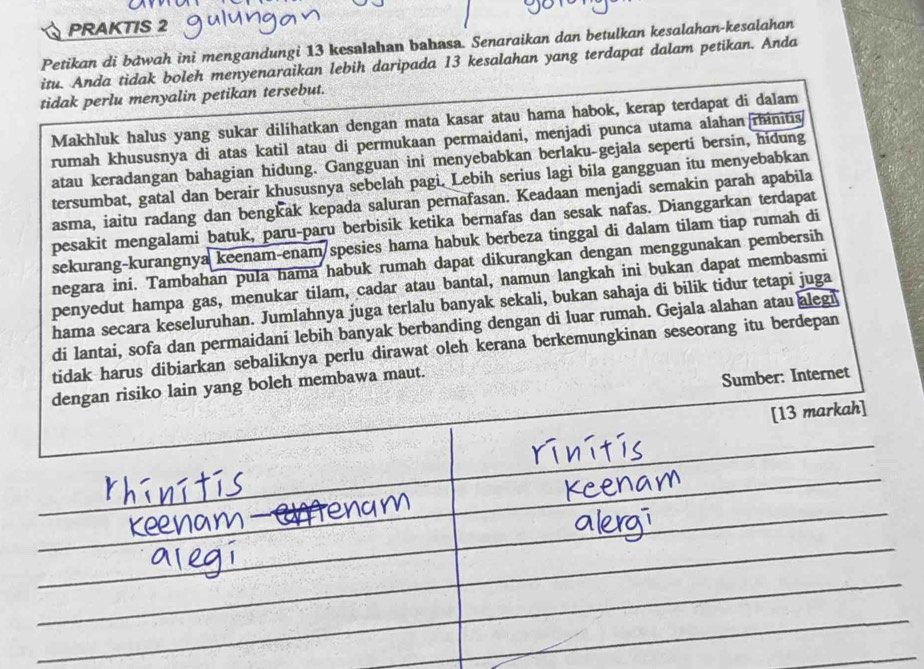 PRAKTIS 2 gulungan
Petikan di bawah ini mengandungi 13 kesalahan bahasa. Senaraikan dan betulkan kesalahan-kesalahan
itu. Anda tidak boleh menyenaraikan lebih daripada 13 kesalahan yang terdapat dalam petikan. Anda
tidak perlu menyalin petikan tersebut.
Makhluk halus yang sukar dilihatkan dengan mata kasar atau hama habok, kerap terdapat di dalam
rumah khususnya di atas katil atau di permukaan permaidani, menjadi punca utama alahan rhinitis
atau keradangan bahagian hidung. Gangguan ini menyebabkan berlaku-gejala seperti bersin, hidung
tersumbat, gatal dan berair khususnya sebelah pagi. Lebih serius lagi bila gangguan itu menyebabkan
asma, iaitu radang dan bengkak kepada saluran pernafasan. Keadaan menjadi semakin parah apabila
pesakit mengalami batuk, paru-paru berbisik ketika bernafas dan sesak nafas. Dianggarkan terdapat
sekurang-kurangnya keenam-enam spesies hama habuk berbeza tinggal di dalam tilam tiap rumah di
negara ini. Tambahan pula hama habuk rumah dapat dikurangkan dengan menggunakan pembersih
penyedut hampa gas, menukar tilam, cadar atau bantal, namun langkah ini bukan dapat membasmi
hama secara keseluruhan. Jumlahnya juga terlalu banyak sekali, bukan sahaja di bilik tidur tetapi juga
di lantai, sofa dan permaidani lebih banyak berbanding dengan di luar rumah. Gejala alahan atau alegi
tidak harus dibiarkan sebaliknya perlu dirawat oleh kerana berkemungkinan seseorang itu berdepan
dengan risiko lain yang boleh membawa maut.
Sumber: Internet
[13 markah]
rhinitis rinitis
keenam-enam keenam
alegi alergi